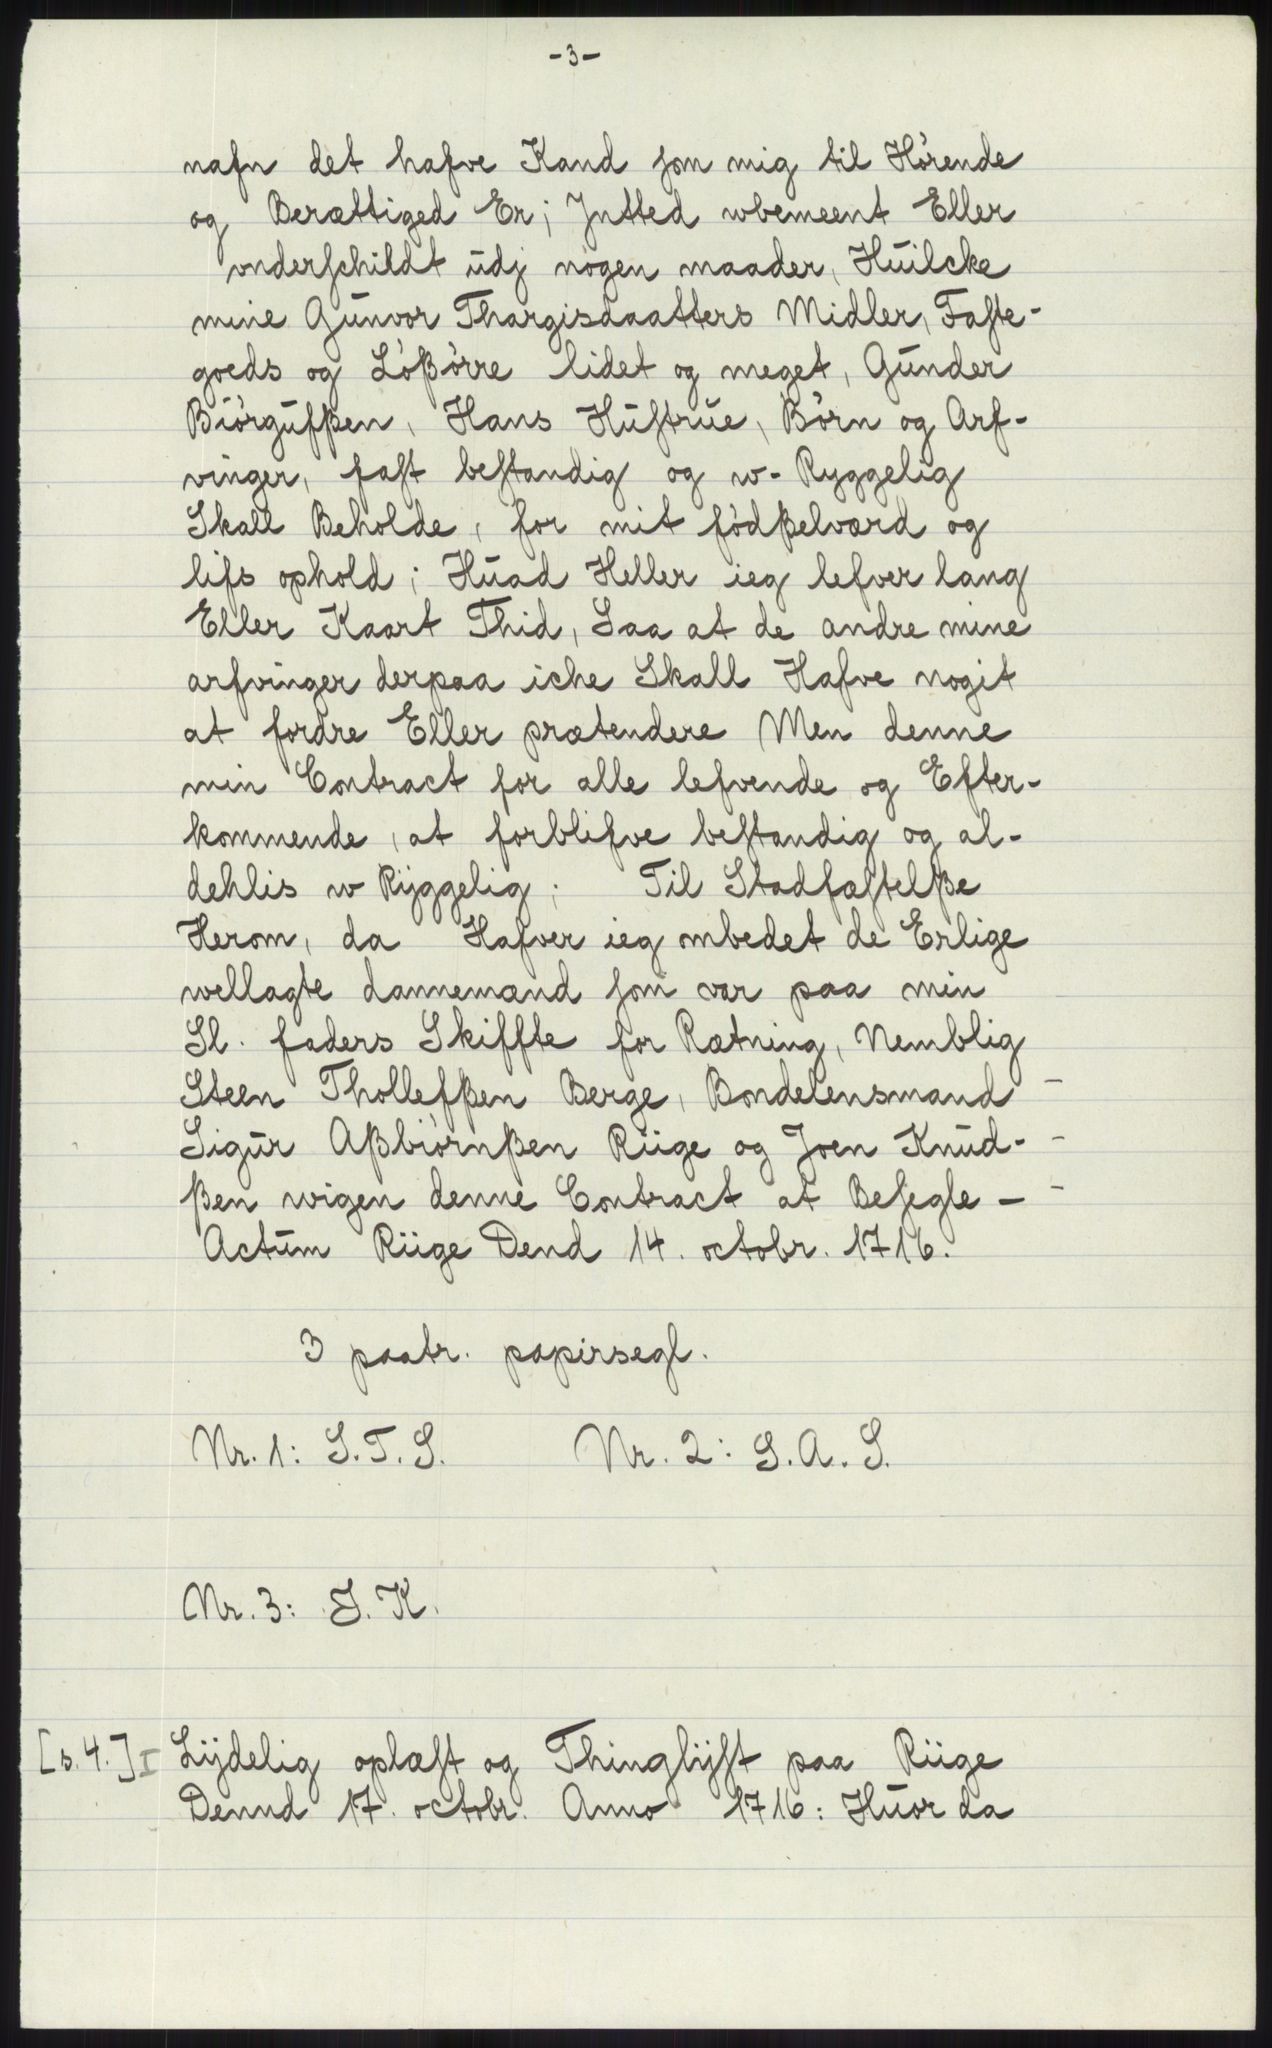 -3-
nafn det hafve Kand som mig til Hørende
og Berættiged Er; Intted wbemeent Eller
vnderschildt udj nogen maader, Huilcke
mine Gunvor Thargisdaatters Midler, Faste-
goeds og Løßørre lidet og meget, Gunder
Biørgufßen, Hans Hustrue, Børn og Arf-
vinger, fast bestandig og w-Ryggelig
Skall Beholde, for mit fødßelværd og
lifs ophold; Huad Heller ieg lefver lang
Eller Kaart Thid, Saa at de andre mine
arfvinger derpaa iche Skall Hafve nogit
at fordre Eller prætendere Men denne
min Contract for alle lefvende og Efter-
kommende, at forblifve bestandig og al-
dehlis w Ryggelig; Til Stadfæstelße
Herom, da Hafver ieg ombedet de Erlige
wellagte dannemænd som var paa min
Sl. faders Skiffte for Rætning, Nemblig
Steen Thollefßen Berge, Bondelensmand -
Sigur Aßbiørnßen Riige og Joen Knud- -
ßen wigen denne Contract at Besegle - -
Actum Riige Dend 14. octobr. 1716.
3 paatr. papirsegl.
Nr. 1: S.T.S. Nr. 2: S.A.S.
Nr. 3: J.K.
[s.4.] I Lydelig oplæst og Thinglyst paa Riige
Dennd 17. octobr. Anno 1716: Huor da